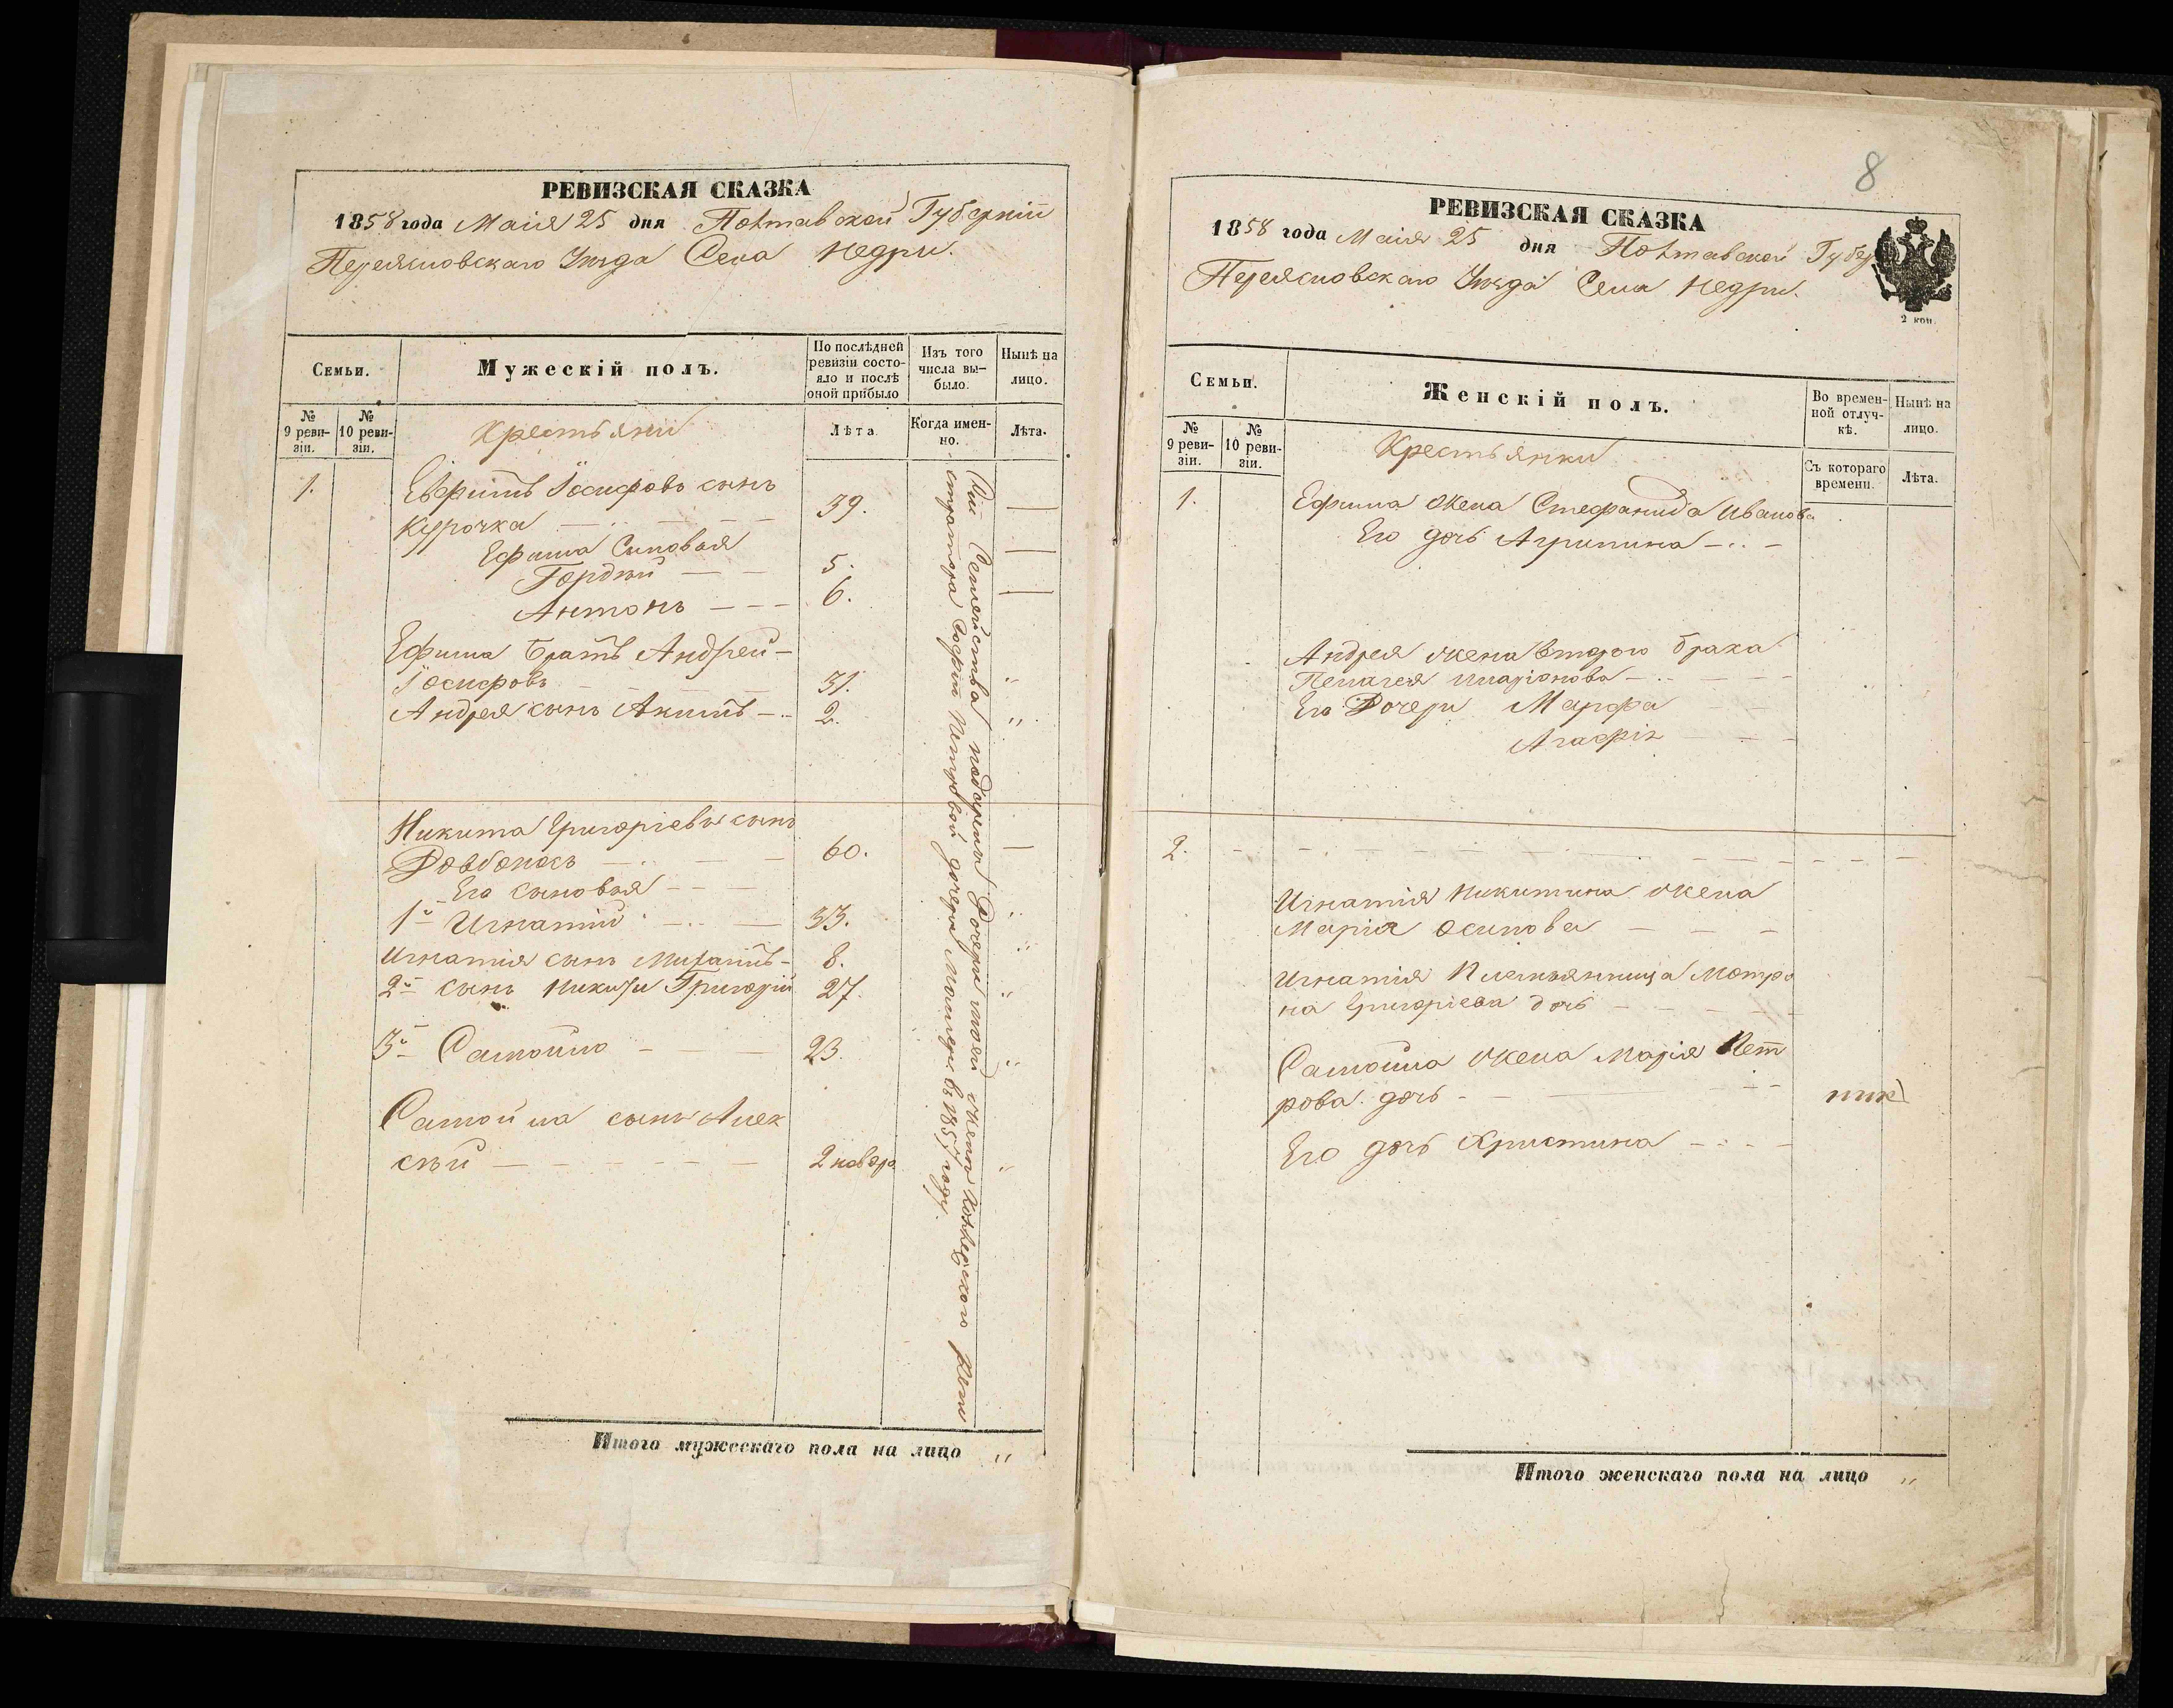 РЕВИЗСКАЯ СКАЗКА
1858 года Маія 25 дня Полтавской Губерніи
Переясловскаго Уѣзда Села Недри.
Семьи.
Мужескій полъ.
По послѣдней ревизіи состояло и послѣ оной прибыло
Изъ того числа выбыло.
Нынѣ на лицо.
№ 9 ревизіи.
№ 10 ревизіи.
Крестьяни
Лѣта
Когда именно.
Лѣта.
1.
Іосифовъ сынъ
Курочка 39. —
Ефима Сыновья —
Гордѣй — — 5.
Антонъ — — - 6. —
Ефима Братъ Андрей -
Іосифовъ 31. "
Андрея сынъ 2. "
Никита Григоріевъ сынъ
Довбонось — 60. —
Его сыновья - - —
1й Игнатій — 33. "
Игнатія сынъ 8. "
2й сынъ Никиты Григорій 27. "
3й Самойло - — 23. "
Самойла сынъ Алек
сѣй — - - - - — 2 новоро "
Сіи Семейства подарены Дочери моей жены Коллежского Реги
стратора Софіи Петровой дочери въ 1857 году.
Итого мужескаго пола на лицо "
8
РЕВИЗСКАЯ СКАЗКА
1858 года Маія 25 дня Полтавской Губер
Переясловскаго Уѣзда Села Недри.
2 коп.
Семьи.
Женскій полъ.
Во временной отлучкѣ.
Нынѣ на лицо.
№ 9 ревизіи.
№ 10 ревизіи.
Крестьянки
Съ котораго времени.
Лѣта.
1. Ефима жена Стефанида Иванова
Его дочь Агрипина
Андрея жена втораго брака
Пелагея Иларіонова
Его Дочери Марфа
Агафія
2. - - - - -
Игнатія Никитина жена
Марія Осипова — — -
Игнатія Племьянница Мотро
на Григоріева дочь
Самойла жена Марія Пет
рова дочь
Его дочь Христина
Итого женскаго пола на лицо "